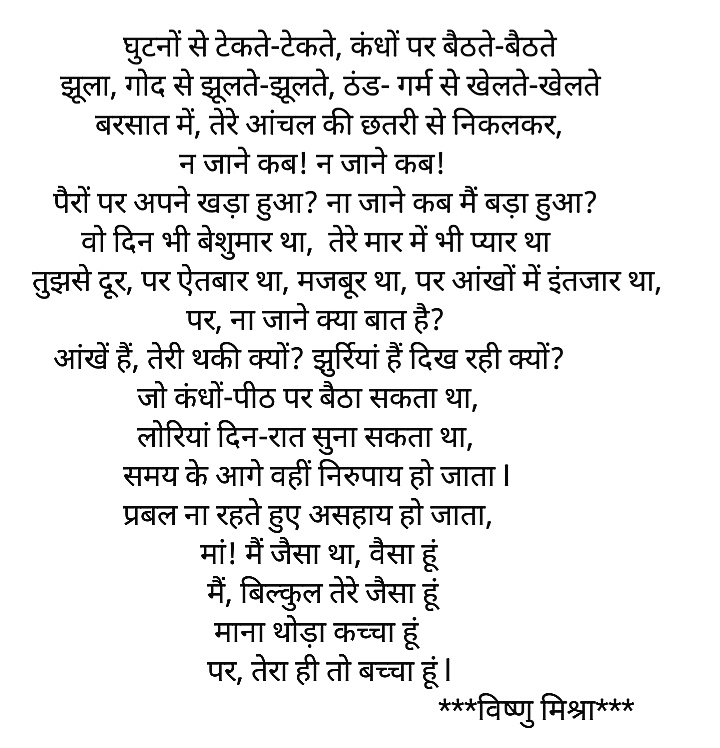 घुटनों से टेकते-टेकते, कंधों पर बैठते-बैठते
झूला, गोद से झूलते-झूलते, ठंड- गर्म से खेलते-खेलते
बरसात में, तेरे आंचल की छतरी से निकलकर,
न जाने कब! न जाने कब!
पैरों पर अपने खड़ा हुआ? ना जाने कब मैं बड़ा हुआ?
वो दिन भी बेशुमार था,  तेरे मार में भी प्यार था
तुझसे दूर, पर ऐतबार था, मजबूर था, पर आंखों में इंतजार था,
पर, ना जाने क्या बात है?
आंखें हैं, तेरी थकी क्यों? झुर्रियां हैं दिख रही क्यों?
जो कंधों-पीठ पर बैठा सकता था,
लोरियां दिन-रात सुना सकता था,
समय के आगे वहीं निरुपाय हो जाता l
प्रबल ना रहते हुए असहाय हो जाता,
मां! मैं जैसा था, वैसा हूं
मैं, बिल्कुल तेरे जैसा हूं
माना थोड़ा कच्चा हूं
पर, तेरा ही तो बच्चा हूं l
***विष्णु मिश्रा***